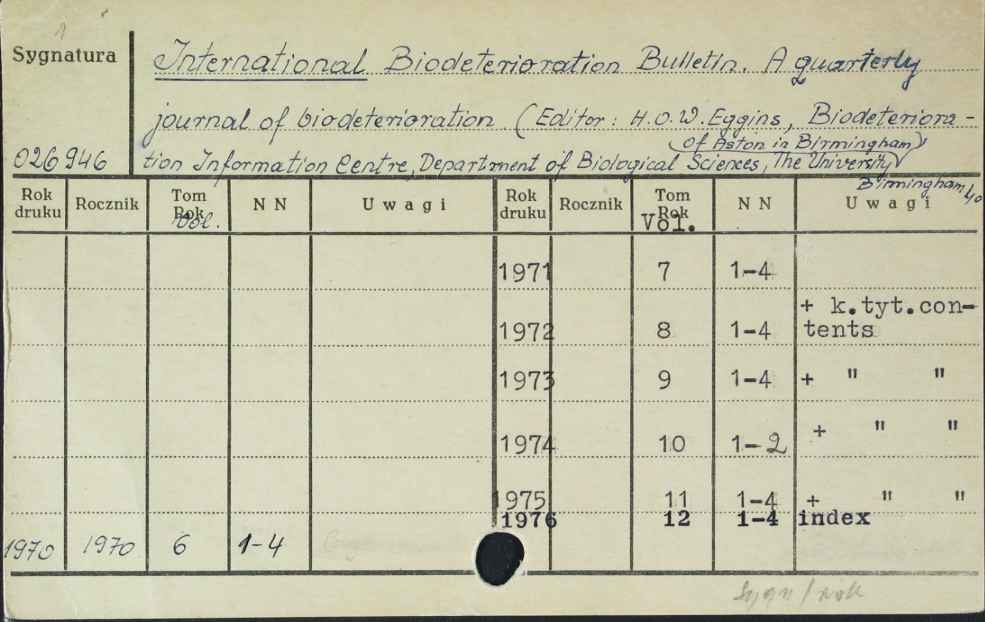 Sygnatura
International Biodeterioration Bulletin. A quarterly
journal of biodeterioration (Editor: H.O.W. Eggins, Biodeteriora-
of Aston in Birmingham)
026946 tion Information Centre, Department of Biological Sciences, The University
Birmingham 40
Rok druku Rocznik Tom Rok Vol. N N Uwagi Rok druku Rocznik Tom Rok Vol. N N Uwagi
1971 7 1-4
+ k.tyt.con-
1972 8 1-4 tents
1973 9 1-4 + " "
1974 10 1-2 + " "
1975 11 1-4 + " "
1976 12 1-4 index
1970 1970 6 1-4
Sygn / rok